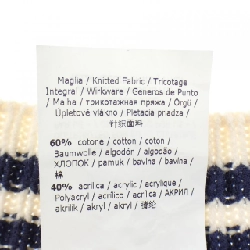 Maglia / Knitted Fabric / Tricotage
Integral / Wirkware / Generos de Punto
/ Malha / трикотажная пряжа / Örgü /
Úpletové vlákno / Pletacia pradza /
针织面料
60% cotone / cotton / coton /
Baumwolle / algodón / algodão /
ХЛОПОК / pamuk / bavlna / bavlna /
棉
40% acrilica / acrylic / acrylique /
Polyacryl / acrílico / acrílica / АКРИЛ /
akrilik / akryl / akryl /